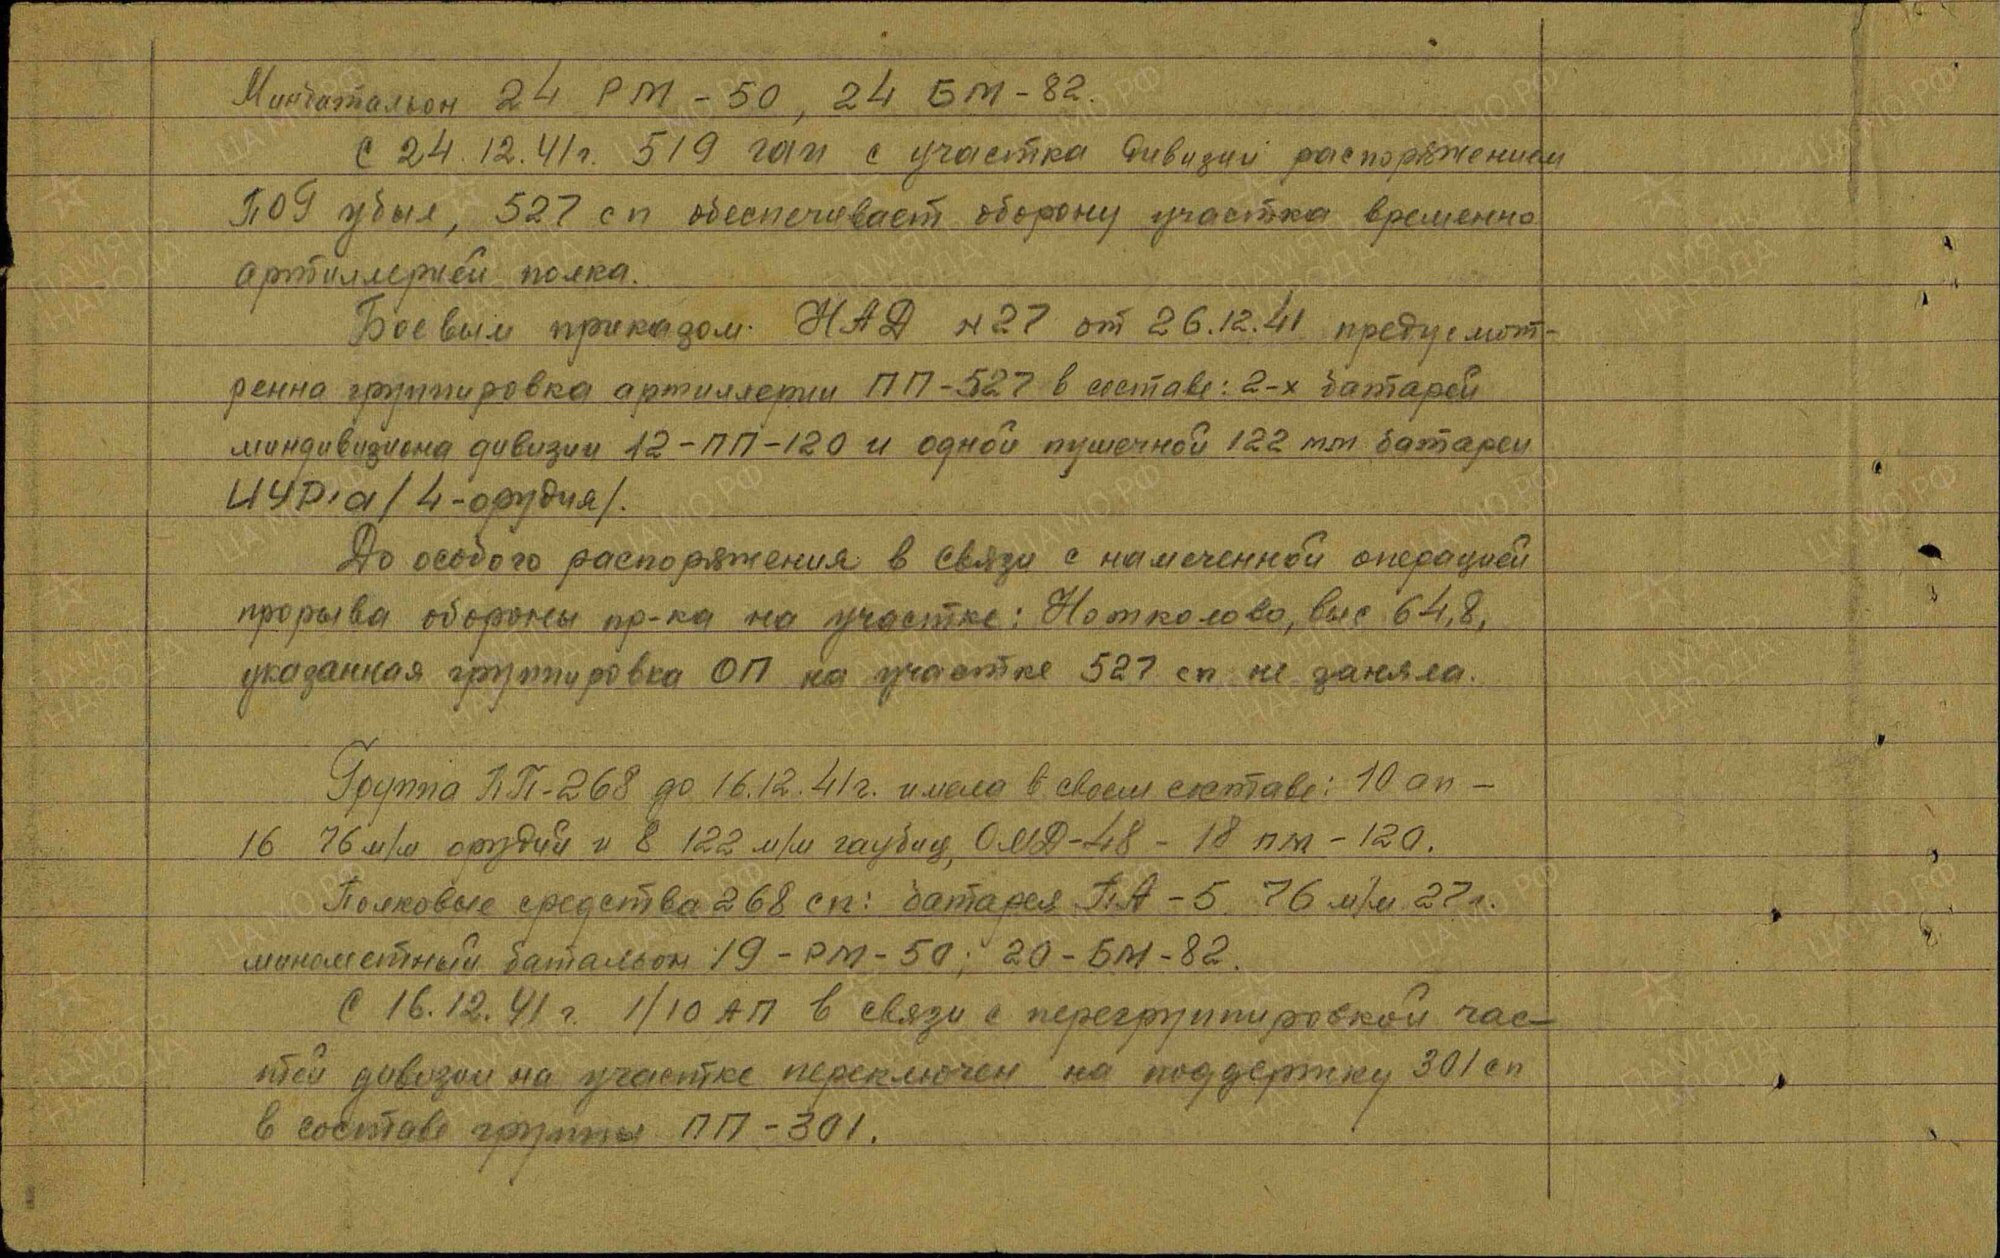 Минбатальон 24 РМ-50, 24 БМ-82.
С 24.12.41г. 519 гап с участка дивизии распоряжением
ПОГ убыл, 527 сп обеспечивает оборону участка временно
артиллерией полка.
Боевым приказом НАД №27 от 26.12.41 предусмот-
ренна группировка артиллерии ПП-527 в составе: 2-х батарей
миндивизиона дивизии 12-ПП-120 и одной пушечной 122 мм батареи
ИУР'а /4-орудия/.
До особого распоряжения в связи с намеченной операцией
прорыва обороны пр-ка на участке: Нотколово, выс 64,8,
указанная группировка ОП на участке 527 сп не заняла.
Группа ПП-268 до 16.12.41г. имела в своем составе: 10 ап -
16 76 м/м орудий и 8 122 м/м гаубиц, ОМД-48 - 18 пм-120.
Полковые средства 268 сп: батарея ПА-5 76 м/м 27г.
минометный батальон 19-РМ-50; 20-БМ-82.
С 16.12.41г. 1/10 АП в связи с перегруппировкой час-
тей дивизии на участке переключен на поддержку 301 сп
в составе группы ПП-301.
ЦАМО.РФ
ПАМЯТЬ НАРОДА